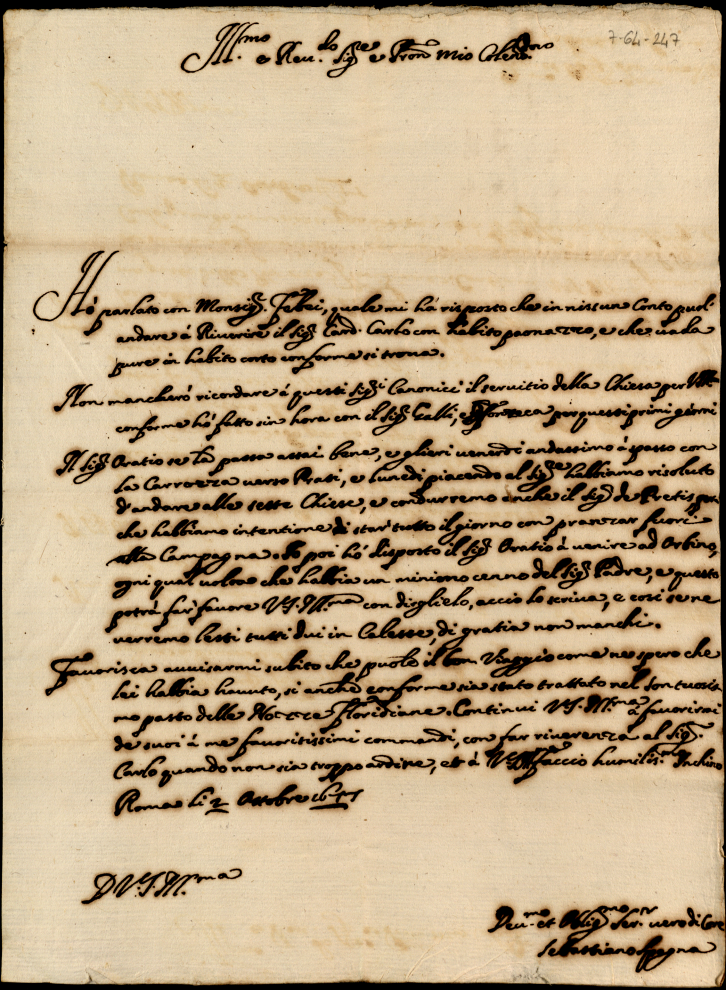 7-64-247
Ill.mo e Reu.do Sig.re e Pron mio Colen.mo
Hò parlato con Monsig.r Febei, quale mi há risposto che in nissun Conto puol
andare á Riuerire il Sig.r Card. Carlo con habito paonazzo, e che uada
pure in habito corto conforme si troua.
Non mancheró ricordare á questi Sig.ri Canonici il seruitio della Chiesa per
conforme hó fatto sin hora con il Sig.r Galli, e per questi primi giorni
Il Sig.r Oratio se la passa assai bene, e glieri uenerdi andassimo á spasso con
la Carrozza uerso Prati, e lunedi piacendo al Sig.re habbiamo risoluto
d'andare alle sette Chiese, e condurremo anche il Sig.r de Pretis per
che habbiamo intentione di star tutto il giorno con pranzar fuori
alla Campagna. Io poi hó disposto il Sig.r Oratio á uenire ad Orbino,
ogni qual uolta che habbia un minimo cenno del Sig.r Padre, e questo
potrá far fauore V.S. Ill.ma con dirglielo, accio lo scriua, e cosi se ne
uerremo lesti tutti dui in Calesse, di gratia non manchi.
Fauorisca auuisarmi subito che puole il bon Viaggio come ne spero che
lei habbia hauuto, si anche conforme sia stato trattato nel sontuosis
mo pasto delle Nozze Floridiane. Continui V.S. Ill.ma á fauorirmi
de suoi á me fauoritissimi commandi, con far riuerenza al Sig.r
Carlo quando non sia troppo ardire, et á V.S. Ill.ma faccio humilis.mo Inchino
Roma li 2 Ottobre
D V.S. Ill.ma
Deu.mo et Oblig.mo Ser.r uero di Core
Sebastiano Spagna